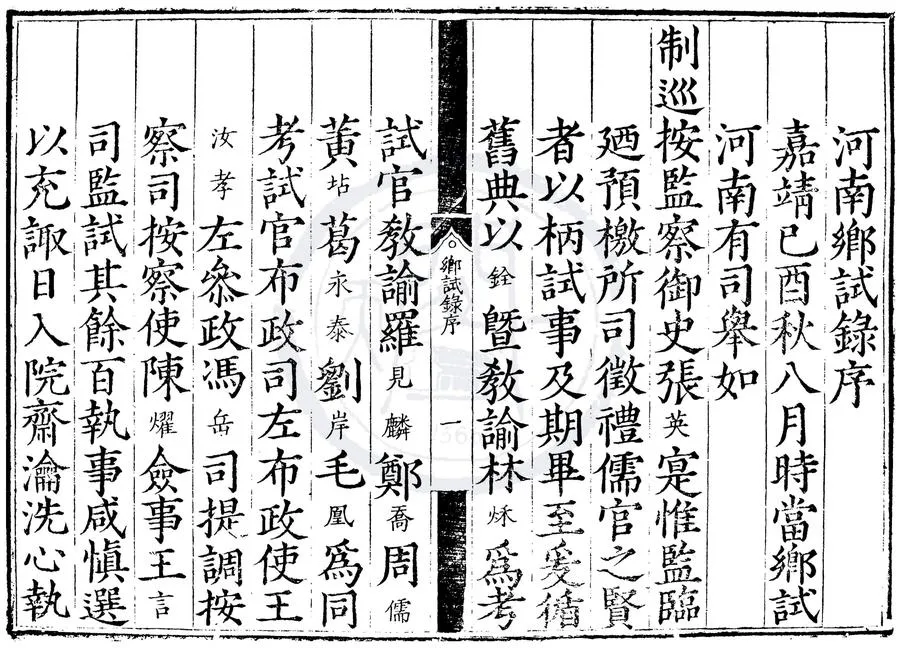 河南鄉試錄序
嘉靖己酉秋八月時當鄉試
河南有司舉如
制巡按監察御史張英寔惟監臨
廼預檄所司徵禮儒官之賢
者以柄試事及期畢至爰循
舊典以銓曁敎諭林烁爲考
鄉試錄序 一
試官敎諭羅見麟鄭喬周儒
黃坫葛永泰劉岸毛鳳爲同
考試官布政司左布政使王
汝孝左叅政馮岳司提調按
察司按察使陳燿僉事王言
司監試其餘百執事咸愼選
以充諏日入院齋瀹洗心執